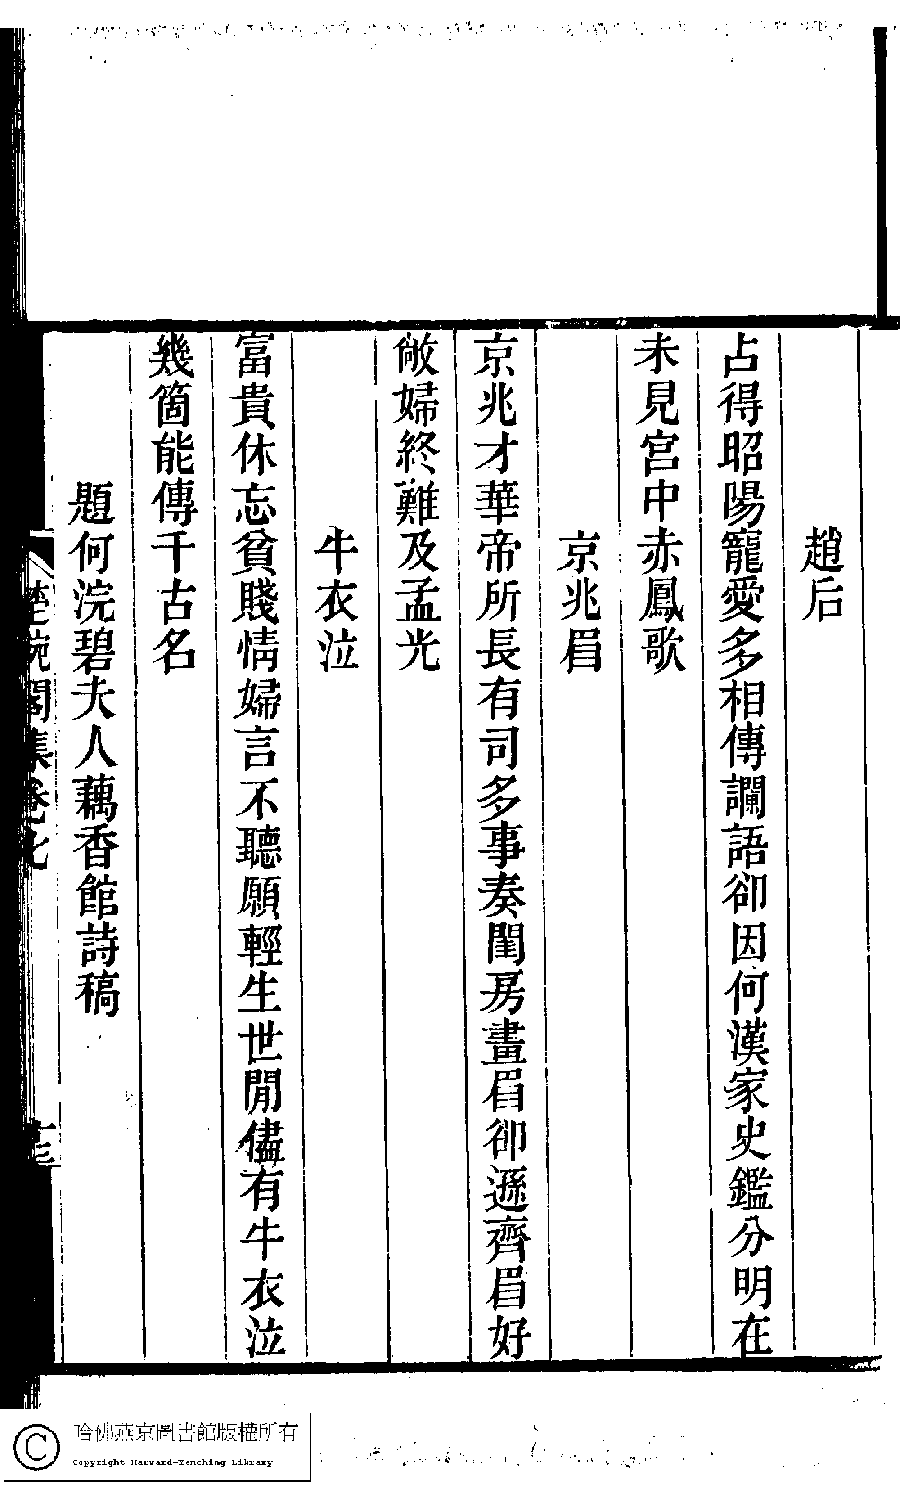 趙后
占得昭陽寵愛多相傳讕語卻因何漢家史鑑分明在
未見宮中赤鳳歌
京兆眉
京兆才華帝所長有司多事奏閨房畫眉卻遜齊眉好
敵婦終難及孟光
牛衣泣
富貴休忘貧賤情婦言不聽願輕生世閒儘有牛衣泣
幾箇能傳千古名
題何浣碧夫人藕香館詩稿
楚畹閣集卷七
十三
哈佛燕京圖書館版權所有
Copyright Harvard-Yenching Library